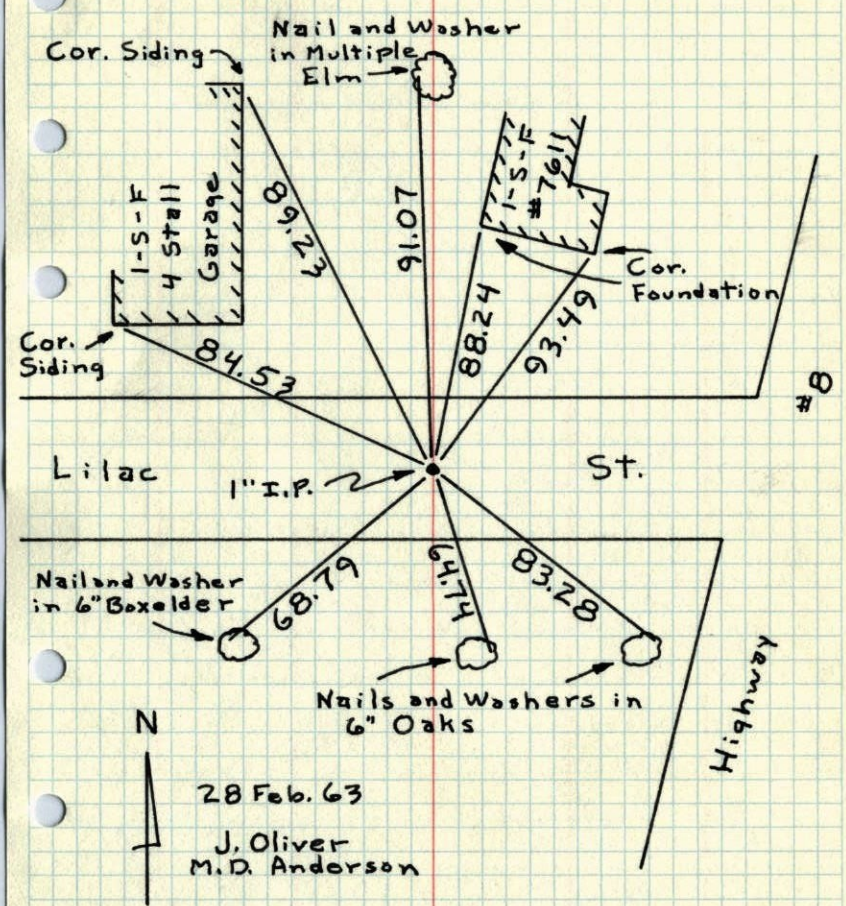 Nail and Washer
in Multiple
Elm
Cor. Siding
1-S-F
4 Stall
Garage
89.23
91.07
1-S-F
#7611
Cor.
Foundation
88.24
93.49
Cor.
Siding
84.53
#8
Lilac
St.
1" I.P.
Nail and Washer
in 6" Boxelder
68.79
64.74
83.28
Nails and Washers in
6" Oaks
Highway
N
28 Feb. 63
J. Oliver
M.D. Anderson